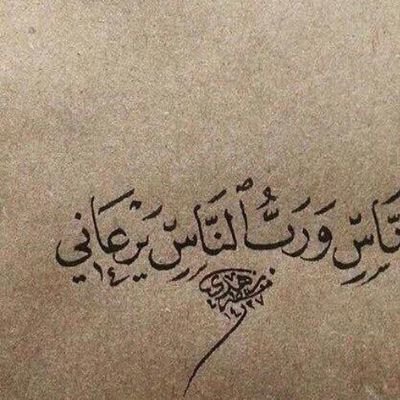 نَّاسِ وَرَبُّ ٱلنَّاسِ يَرْعَاني